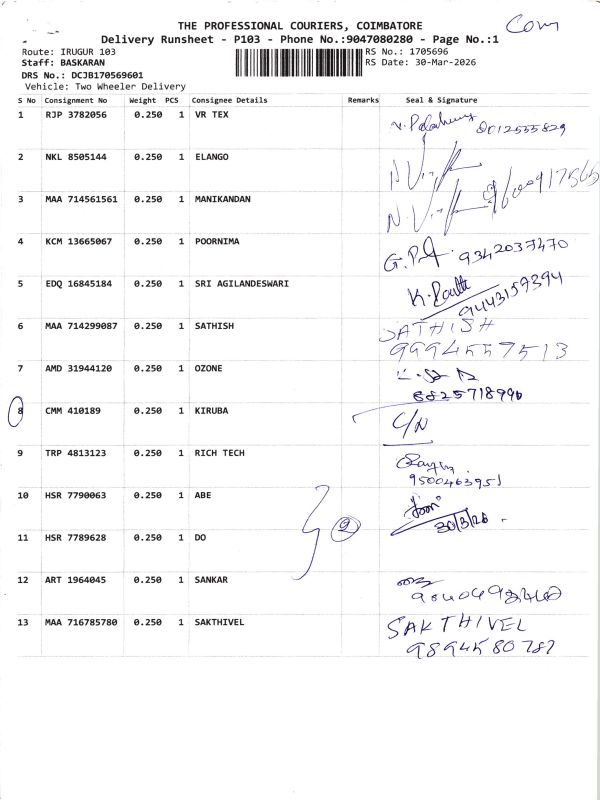 Com
THE PROFESSIONAL COURIERS, COIMBATORE
Delivery Runsheet - P103 - Phone No.:9047080280 - Page No.:1
Route: IRUGUR 103
RS No.: 1705696
Staff: BASKARAN
RS Date: 30-Mar-2026
DRS No.: DCJB170569601
Vehicle: Two Wheeler Delivery
S No Consignment No Weight PCS Consignee Details Remarks Seal & Signature
1 RJP 3782056 0.250 1 VR TEX 9012555829
2 NKL 8505144 0.250 1 ELANGO
3 MAA 714561561 0.250 1 MANIKANDAN
4 KCM 13665067 0.250 1 POORNIMA 9342037470
5 EDQ 16845184 0.250 1 SRI AGILANDESWARI 9443159394
6 MAA 714299087 0.250 1 SATHISH SATHISH
9994557513
7 AMD 31944120 0.250 1 OZONE
8 CMM 410189 0.250 1 KIRUBA C/N
9 TRP 4813123 0.250 1 RICH TECH
9500463951
10 HSR 7790063 0.250 1 ABE
2 30/3/26
11 HSR 7789628 0.250 1 DO
12 ART 1964045 0.250 1 SANKAR
13 MAA 716785780 0.250 1 SAKTHIVEL SAKTHIVEL
9894580787